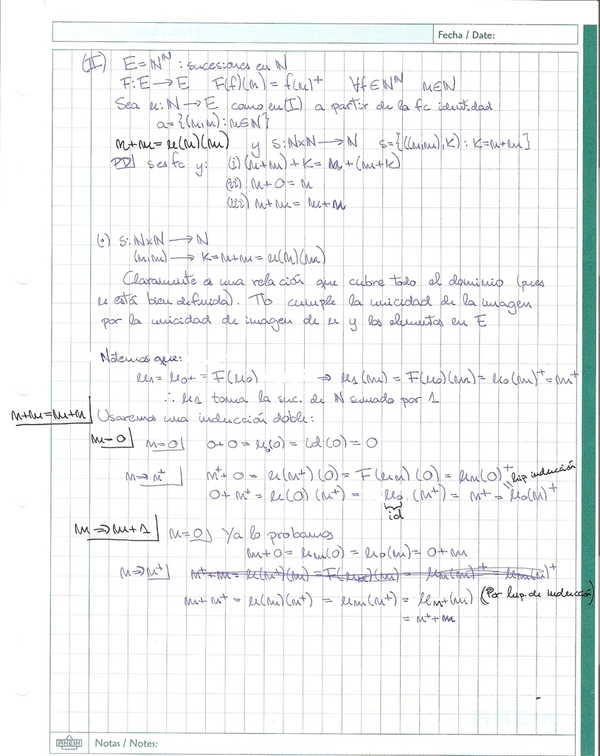 Fecha / Date:
(II) E = ℕ^ℕ : sucesiones en ℕ
F: E → E F(f)(n) = f(n)⁺ ∀f ∈ ℕ^ℕ n ∈ ℕ
Sea u: ℕ → E como en (I) a partir de la fc identidad
a = {(n,n) : n ∈ ℕ}
n+m = u(n)(m) y s: ℕ×ℕ → ℕ s = {((n,m),k) : k = n+m}
PD s es fc y: (i) (n+m)+k = n+(m+k)
(ii) n+0 = n
(iii) n+m = m+n
(•) s: ℕ×ℕ → ℕ
(n,m) → k = n+m = u(n)(m)
Claramente es una relación que cubre todo el dominio (pues
u está bien definida). Tb cumple la unicidad de la imagen
por la unicidad de imagen de u y los elementos en E
Notemos que:
u₁ = u₀₊ = F(u₀) ⇒ u₁(m) = F(u₀)(m) = u₀(m)⁺ = m⁺
∴ u₁ toma la suc. de ℕ sumado por 1
n+m = m+n Usaremos una inducción doble:
m=0 n=0 0+0 = u₀(0) = id(0) = 0
n⇒n⁺ n⁺+0 = u(n⁺)(0) = F(uₙ)(0) = uₙ(0)⁺ hip inducción
0+n⁺ = u(0)(n⁺) = u₀(n⁺) = n⁺ = u₀(n)⁺
id
m⇒m+1 n=0 Ya lo probamos
m+0 = uₘ(0) = u₀(m) = 0+m
n⇒n⁺ n⁺+m = u(n⁺)(m) = F(uₙ)(m) = uₙ(m)⁺ =
m+n⁺ = u(m)(n⁺) = uₘ(n⁺) = uₙ₊(m) (Por hip. de inducción)
= n⁺+m
RHEIN Notas / Notes: